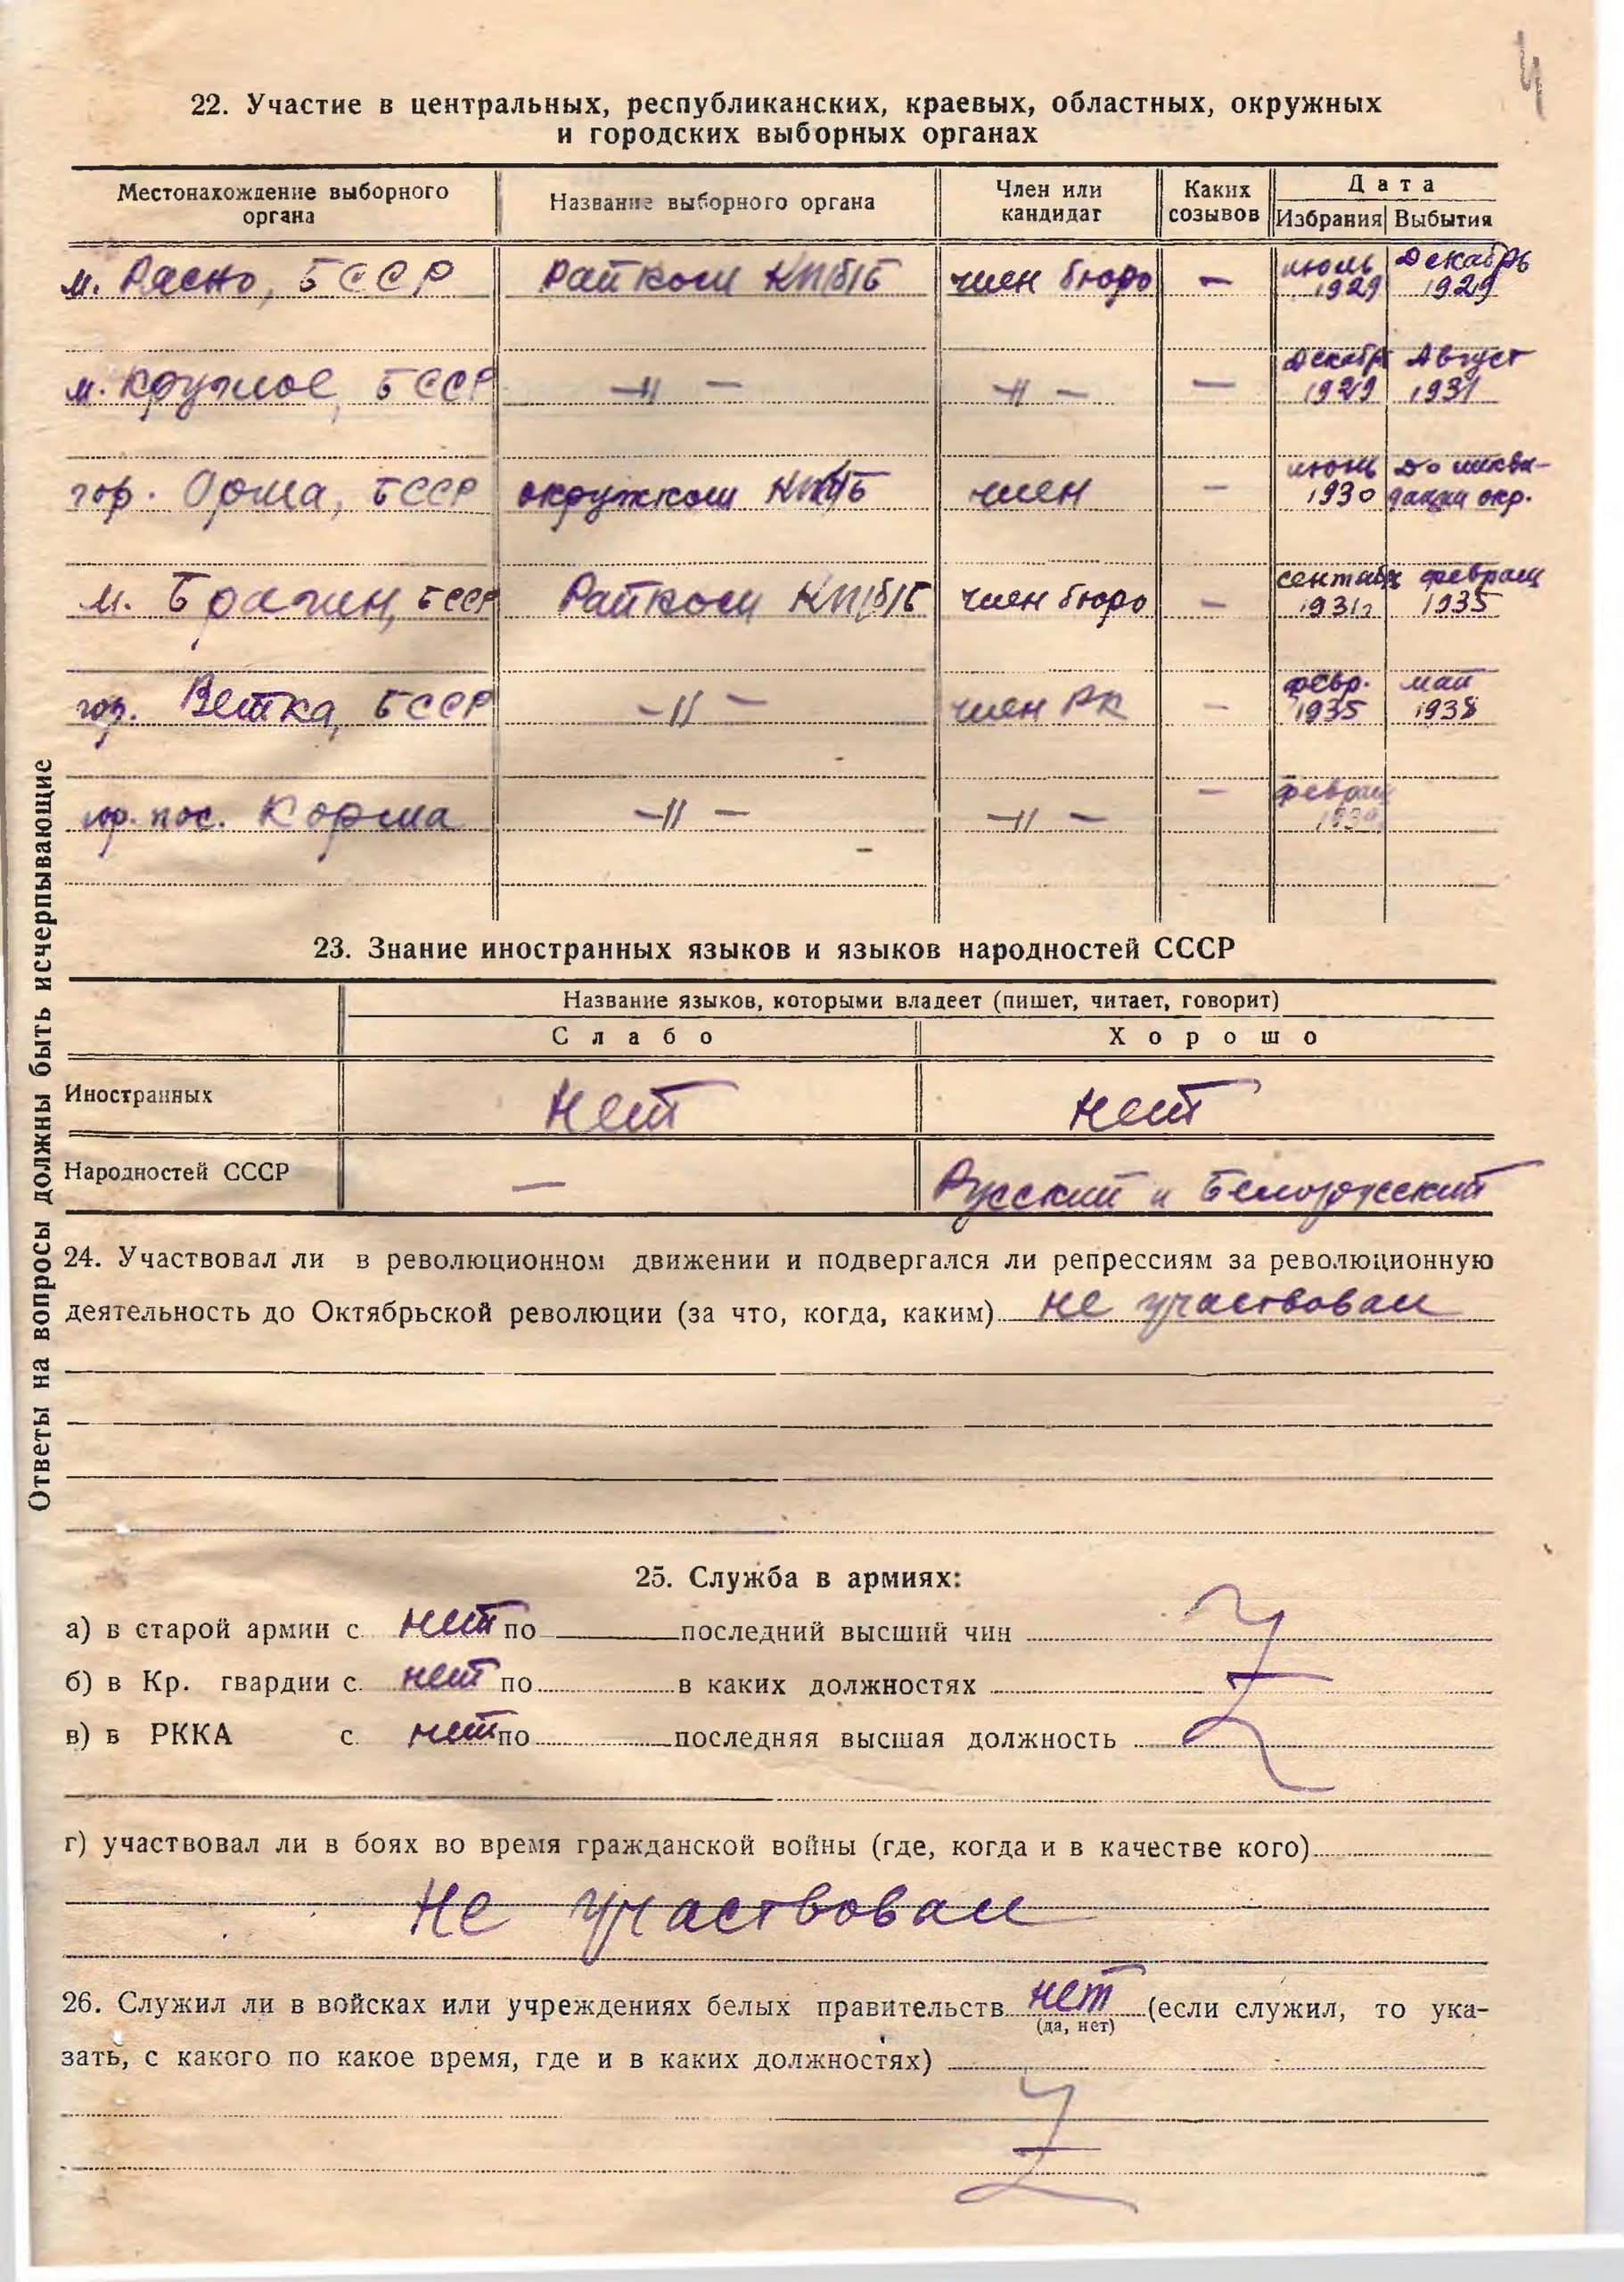 4
22. Участие в центральных, республиканских, краевых, областных, окружных
и городских выборных органах
Местонахождение выборного органа | Название выборного органа | Член или кандидат | Каких созывов | Дата
Избрания | Выбытия
м. Расно, БССР | Райком КП(б)Б | член бюро | — | июль 1929 | Декабрь 1929
м. Круглое, БССР | —"— | —"— | — | Декабр 1929 | Август 1931
гор. Орша, БССР | окружком КП(б)Б | член | — | июнь 1930 | до ликвидации окр.
м. Брагин, БССР | Райком КП(б)Б | член бюро | — | сентябр 1931г | феврал 1935
гор. Ветка, БССР | —"— | член РК | — | февр. 1935 | май 1938
гор. пос. Корма | —"— | —"— | — | феврал
23. Знание иностранных языков и языков народностей СССР
Название языков, которыми владеет (пишет, читает, говорит)
Слабо | Хорошо
Иностранных | Нет | нет
Народностей СССР | — | Русский и Белорусский
24. Участвовал ли в революционном движении и подвергался ли репрессиям за революционную
деятельность до Октябрьской революции (за что, когда, каким) не участвовал
25. Служба в армиях:
а) в старой армии с нет по последний высший чин
б) в Кр. гвардии с нет по в каких должностях
в) в РККА с нет по последняя высшая должность
г) участвовал ли в боях во время гражданской войны (где, когда и в качестве кого)
Не участвовал
26. Служил ли в войсках или учреждениях белых правительств нет (если служил, то ука-
(да, нет)
зать, с какого по какое время, где и в каких должностях)
Ответы на вопросы должны быть исчерпывающие